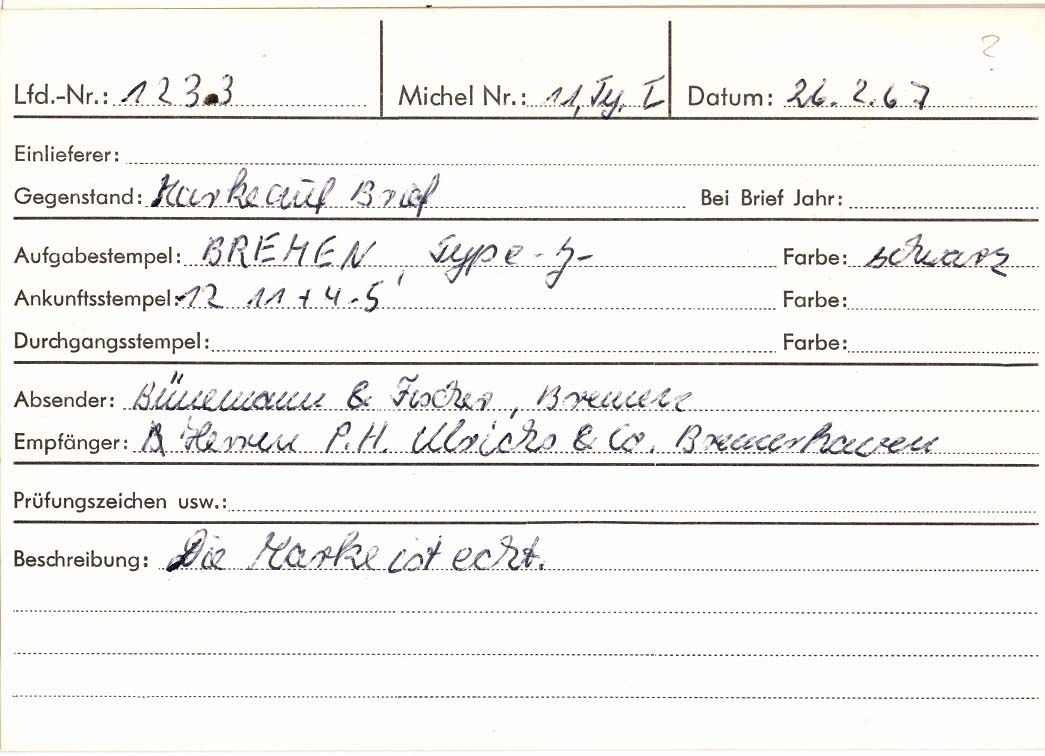 ?
Lfd.-Nr.: 1233 Michel Nr.: 11, Ty. I Datum: 26.2.67
Einlieferer:
Gegenstand: Marke auf Brief Bei Brief Jahr:
Aufgabestempel: BREMEN, Type -7- Farbe: schwarz
Ankunftsstempel: 12 11 + 4-5 Farbe:
Durchgangsstempel: Farbe:
Absender: Bünemann & Fischer, Bremen
Empfänger: Herren P.H. Ulrichs & Co. Bremerhaven
Prüfungszeichen usw.:
Beschreibung: Die Marke ist echt.